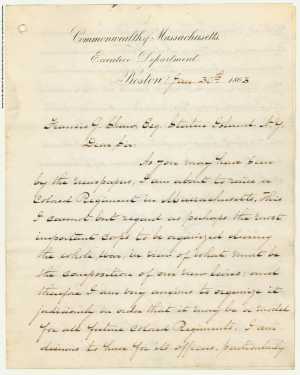 Commonwealth of Massachusetts
Executive Department
Boston Jan. 30th 1863
Francis G. Shaw, Esq. Staten Island N.Y.
Dear Sir.
As you may have seen
by the newspapers, I am about to raise a
Colored Regiment in Massachusetts. This
I cannot but regard as perhaps the most
important corps to be organized during
the whole war, in view of what must be
the composition of our new levies; and
therefore I am very anxious to organize it
judiciously in order that it may be a model
for all future Colored Regiments. I am
desirous to have for its officers, particularly